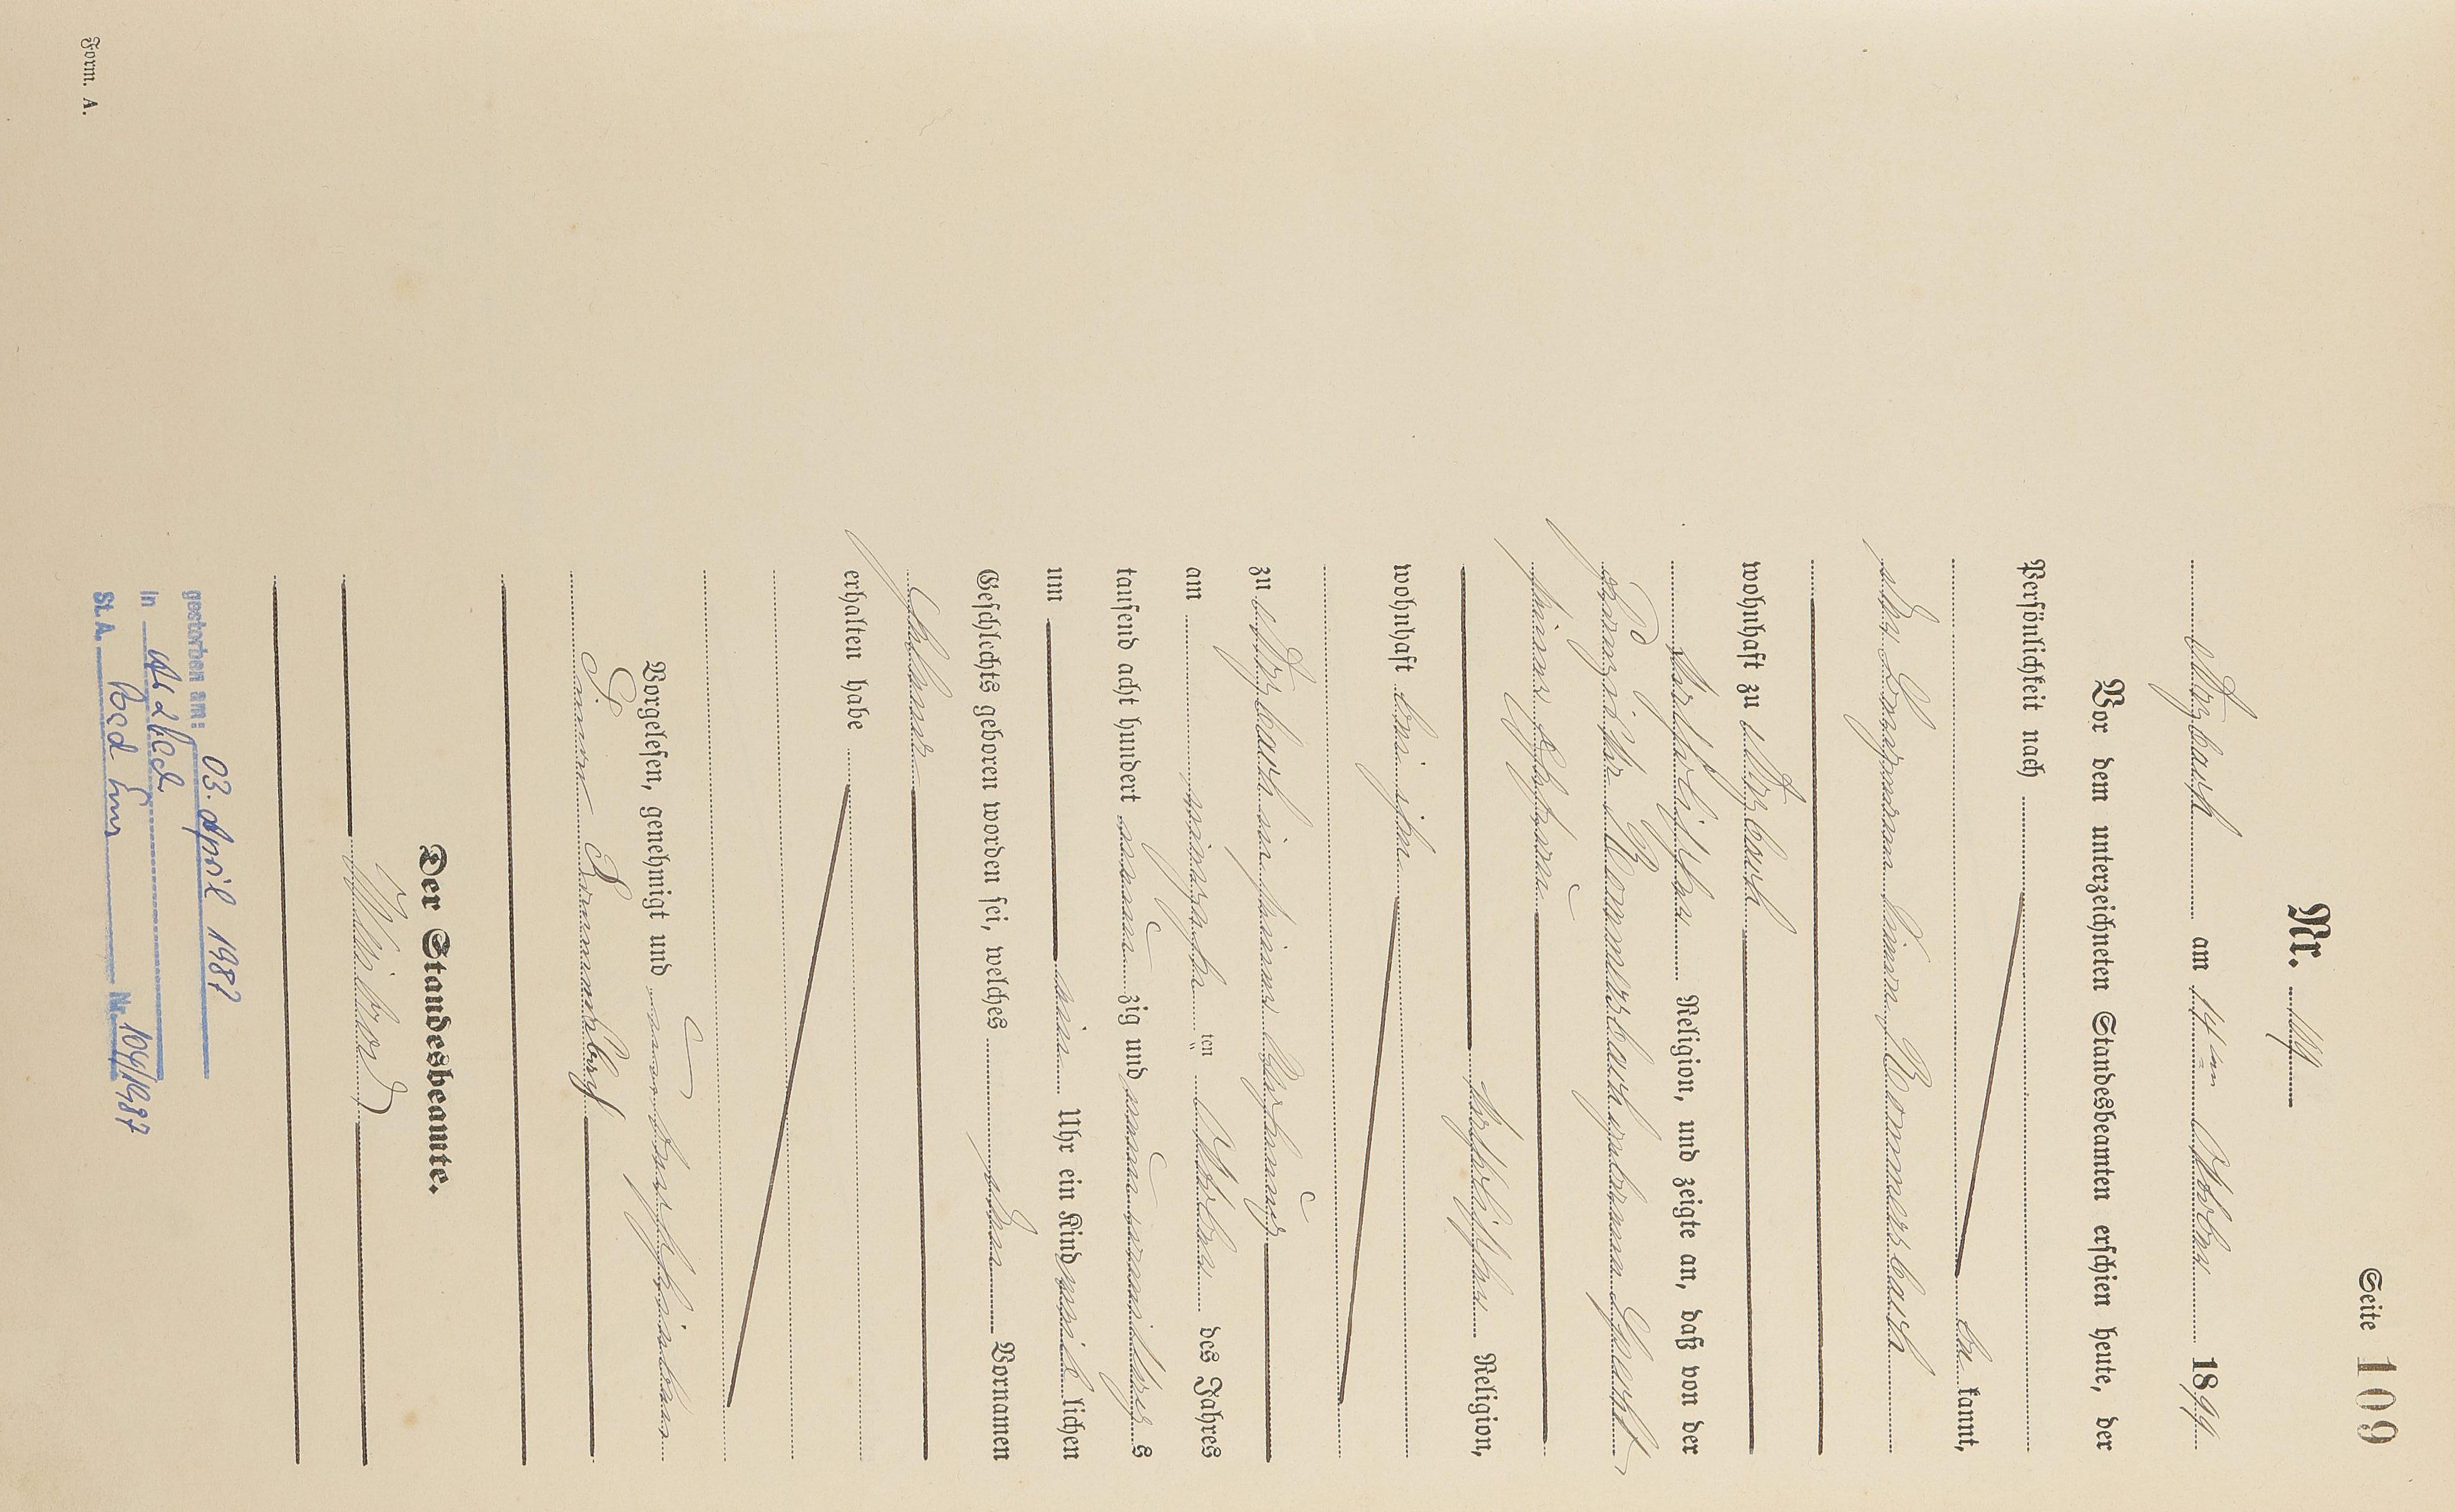 Seite 109
Nr. 109
Arzbach am 14ten Oktober 1899
Vor dem unterzeichneten Standesbeamten erschien heute, der
Persönlichkeit nach
be kannt,
der Bergmann Simon Bommersbach
wohnhaft zu Arzbach
katholischer Religion, und zeigte an, daß von der
Franziska Bommersbach geborenen Specht
seiner Ehefrau
katholischer Religion,
wohnhaft bei ihm
zu Arzbach in seiner Behausung
am ten Oktober des Jahres
tausend acht hundert neun zig und neun s
um ein Uhr ein Kind weib lichen
Geschlechts geboren worden sei, welches den Vornamen
erhalten habe
Vorgelesen, genehmigt und unterschrieben
Simon
Der Standesbeamte.
gestorben am: 03. April 1987
in Arzbach
St. A. Bad Ems Nr. 104/1987
Form. A.